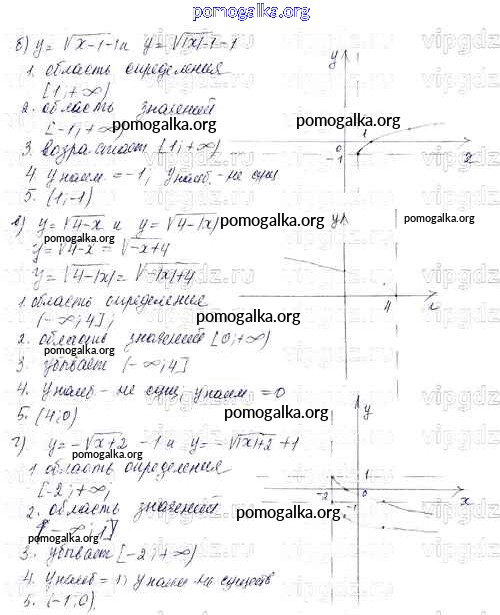 pomogalka.org
б) y = √x-1 -1 и y = √|x|-1 -1
1. область определения
[1; +∞)
2. область значений
[-1; +∞)
pomogalka.org
3. возрастает [1; +∞)
4 y наим = -1, y наиб - не сущ
5. (1; -1)
y
1
0
-1
x
pomogalka.org
в) y = √4-x и y = √4-|x|
pomogalka.org
pomogalka.org
y = √4-x = √-x+4
y = √4-|x| = √-|x|+4
1. область определения
(-∞; 4];
pomogalka.org
2. область значений [0; +∞)
pomogalka.org
3. убывает (-∞; 4]
4. y наиб - не сущ; y наим = 0
5. (4; 0)
y
4
x
pomogalka.org
pomogalka.org
г) y = -√x+2 -1 и y = -√|x|+2 +1
pomogalka.org
1. область определения
[-2; +∞,
2. область значений
(-∞; 1]
3. убывает [-2; +∞)
4. y наиб = 1, y наим не существ
5. (-1; 0).
y
1
-2
-1
0
x
pomogalka.org
pomogalka.org
vipgdz.ru